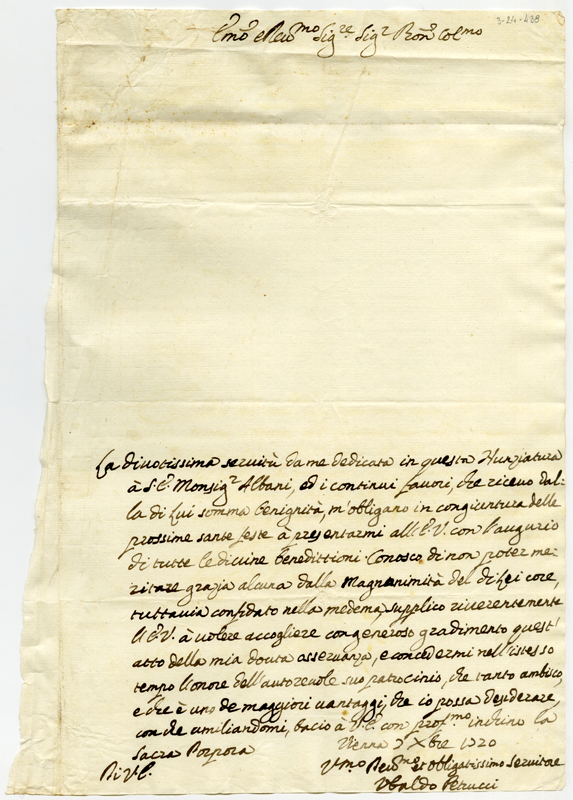 3-24-438
Em.o e Reu.mo Sig.re Sig.r Pron. Col.mo
La diuotissima seruitù da me dedicata in questa Nunziatura
à S.E. Monsig.r Albani, ed i continui fauori, che riceuo dal-
la di Lui somma benignità, m'obligano in congiuntura delle
prossime sante feste à presentarmi all'E.V. con l'augurio
di tutte le diuine benedittioni. Conosco di non poter me-
ritare grazia alcuna dalla Magnanimità del di Lei core,
tuttauia confidato nella medema, supplico riuerentemente
l'E.V. à uolere accogliere con generoso gradimento quest'
atto della mia douta osseruanza, e concedermi nell'istesso
tempo l'onore dell'autoreuole suo patrocinio, che tanto ambisco,
e che è uno de maggiori uantaggi, che io possa desiderare,
con che umiliandomi, bacio à V.E. con prof.mo inchino la
Sacra Porpora
Vienna 7 Xbre 1720
Di V.E.
V.mo Deu.mo et obligatissimo seruitore
Vbaldo Petrucci